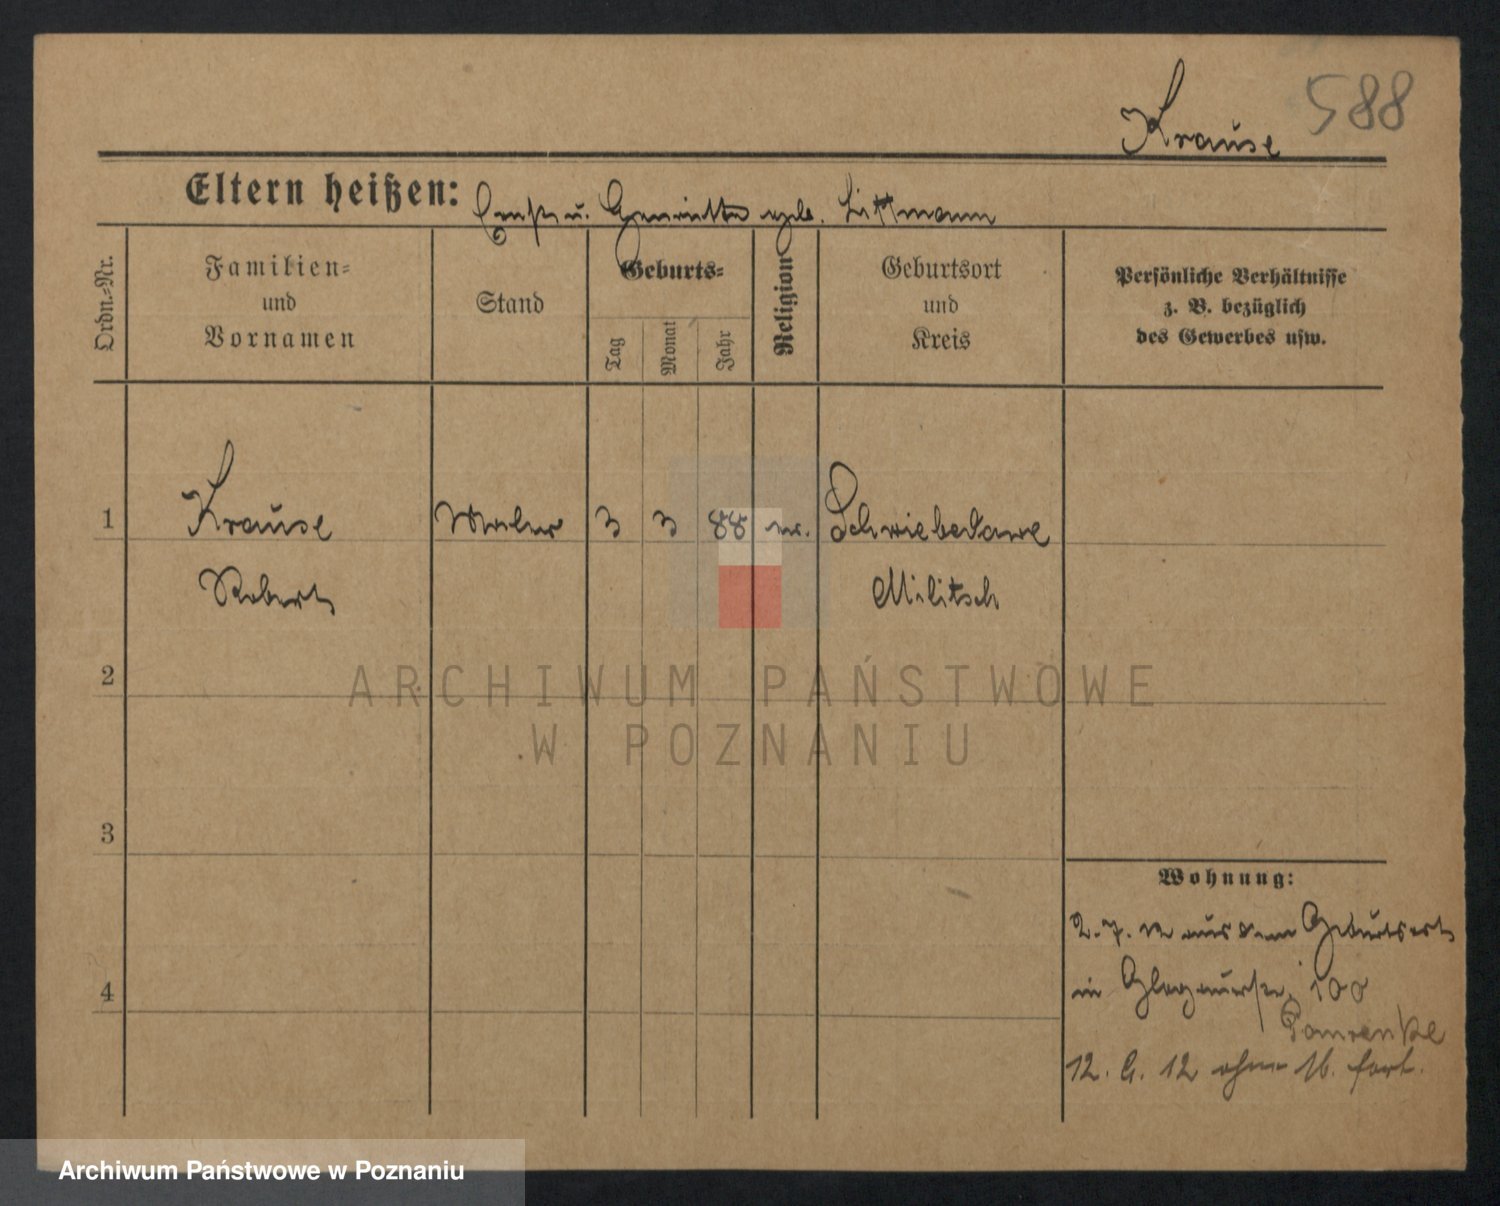 Krause 588
Eltern heißen: Ernst u. Henriette geb. Littmann
Ordn.-Nr.
Familien=
und
Vornamen
Stand
Geburts=
Tag
Monat
Jahr
Religion
Geburtsort
und
Kreis
Persönliche Verhältnisse
z. B. bezüglich
des Gewerbes usw.
1 Krause Maler 3 3 88 ev. Schwiebedawe
Robert Militsch
2
ARCHIWUM PAŃSTWOWE
W POZNANIU
3
Wohnung:
2. 7. aus dem Geburtsort
4
in 100
12. 12 ohne Ab. fort.
Archiwum Państwowe w Poznaniu